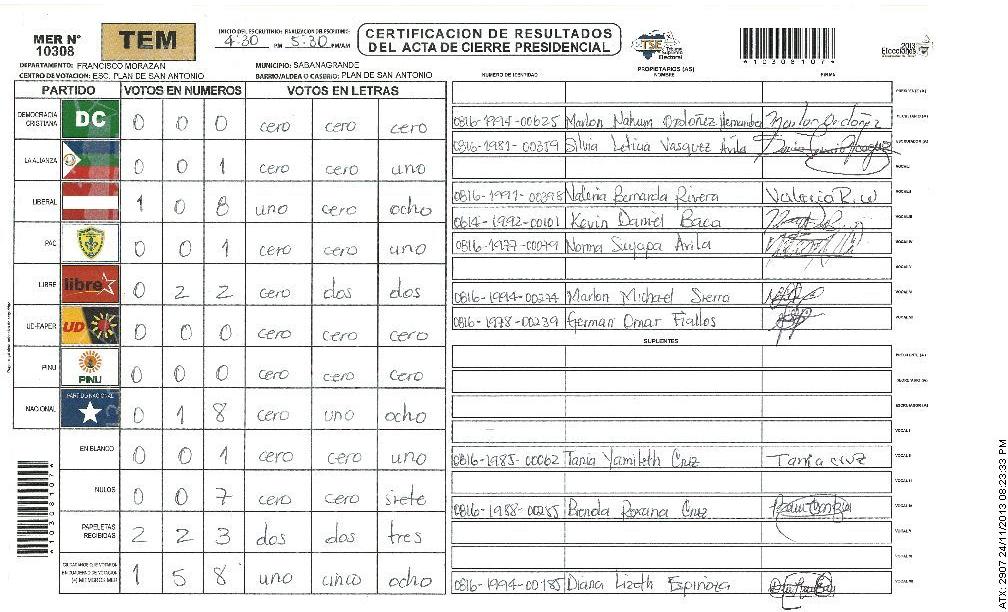 MER N° 10308
TEM
INICIO DEL ESCRUTINIO: FINALIZACION DEL ESCRUTINIO:
4:30 PM 5:30 PM/AM
CERTIFICACION DE RESULTADOS
DEL ACTA DE CIERRE PRESIDENCIAL
TSE
Electoral
*10308107*
2013
Elecciones
DEPARTAMENTO: FRANCISCO MORAZAN
MUNICIPIO: SABANAGRANDE
CENTRO DE VOTACION: ESC. PLAN DE SAN ANTONIO
BARRIO/ALDEA O CASERIO: PLAN DE SAN ANTONIO
PROPIETARIOS (AS)
NUMERO DE IDENTIDAD NOMBRE FIRMA
PARTIDO VOTOS EN NUMEROS VOTOS EN LETRAS
DEMOCRACIA CRISTIANA DC 0 0 0 cero cero cero
LA ALIANZA 0 0 1 cero cero uno
LIBERAL 1 0 8 uno cero ocho
PAC 0 0 1 cero cero uno
LIBRE libre 0 2 2 cero dos dos
UD-FAPER UD 0 0 0 cero cero cero
PINU PINU 0 0 0 cero cero cero
NACIONAL PARTIDO NACIONAL 0 1 8 cero uno ocho
EN BLANCO 0 0 1 cero cero uno
NULOS 0 0 7 cero cero siete
PAPELETAS RECIBIDAS 2 2 3 dos dos tres
1 5 8 uno cinco ocho
PRESIDENTE (A)
0816-1994-00625 Marlon Nahum Ordoñez Hernandez Marlon Ordoñez SECRETARIO (A)
0816-1981-00359 Silvia Leticia Vasquez Avila ESCRUTADOR (A)
VOCAL I
0816-1991-00398 Valeria Bernarda Rivera Valeria R. VOCAL II
0614-1992-00101 Kevin Daniel Baca VOCAL III
0816-1977-00079 Norma Suyapa Avila VOCAL IV
VOCAL V
0816-1994-00274 Marlon Michael Sierra VOCAL VI
0816-1978-00239 German Omar Fiallos VOCAL VII
SUPLENTES
PRESIDENTE (A)
SECRETARIO (A)
ESCRUTADOR (A)
VOCAL I
0816-1985-00062 Tania Yamileth Cruz Tania Cruz VOCAL II
VOCAL III
0816-1988-00285 Brenda Roxana Cruz VOCAL IV
VOCAL V
VOCAL VI
0816-1994-00185 Diana Lizeth Espinoza VOCAL VII
*10308107*
ATX: 2907 24/11/2013 08:23:33 PM